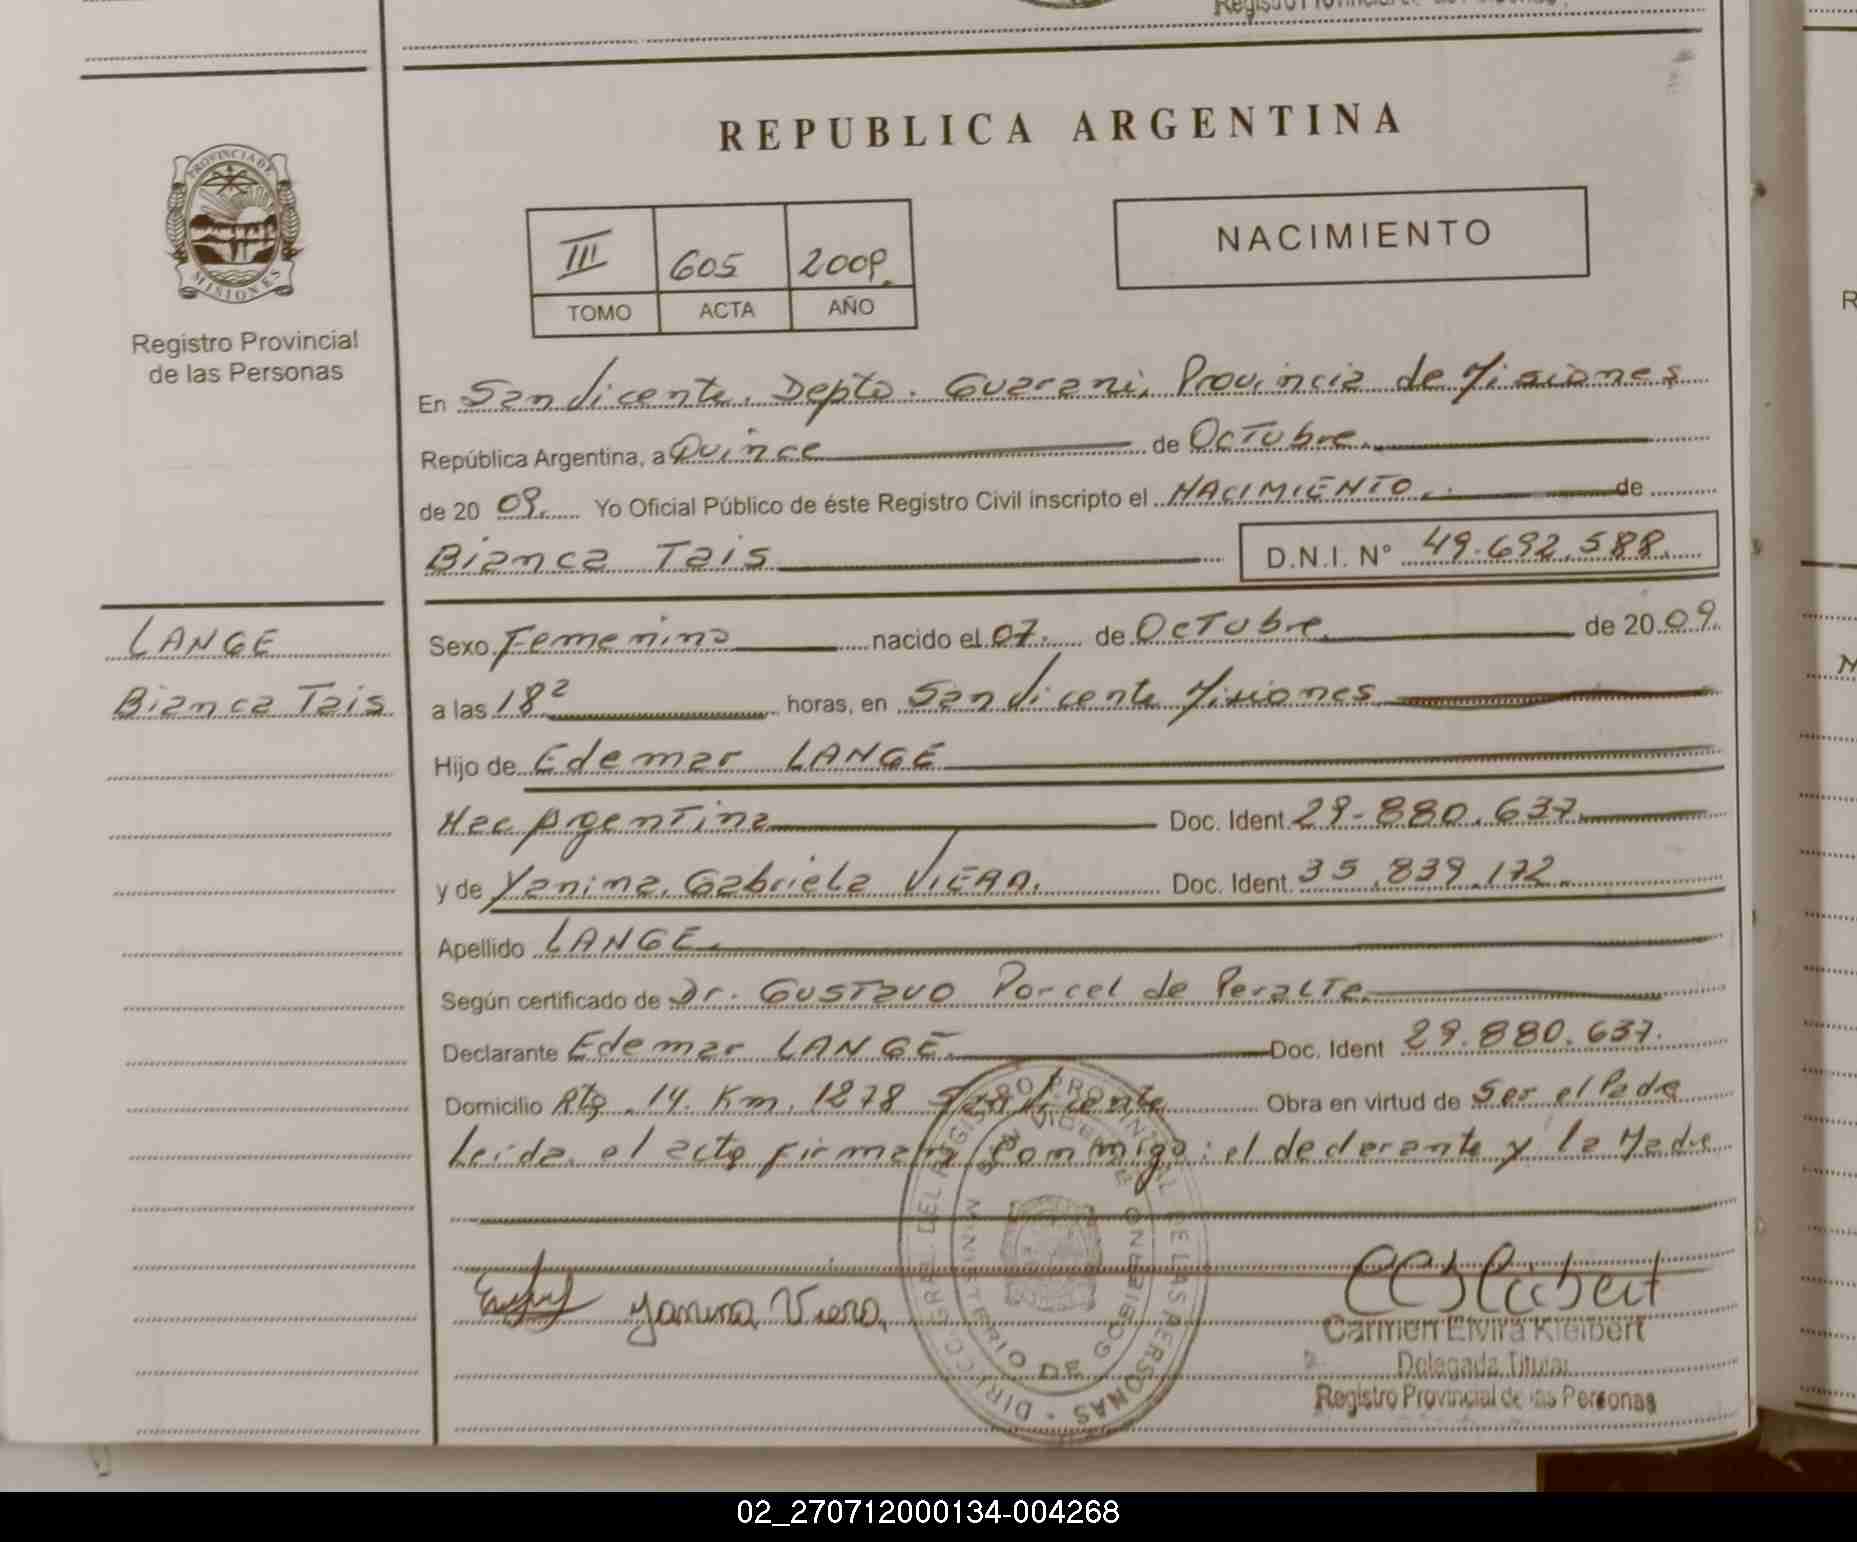 Registro Provincial de las Personas
REPUBLICA ARGENTINA
PROVINCIA DE
MISIONES
Registro Provincial
de las Personas
III 605 2009.
TOMO ACTA AÑO
NACIMIENTO
En San Vicente. Depto. Guarani, Provincia de Misiones
República Argentina, a Quince de Octubre.
de 20 09. Yo Oficial Público de éste Registro Civil inscripto el NACIMIENTO. de
Bianca Tais D.N.I. N° 49.692.588.
LANGE
Bianca Tais
Sexo Femenino nacido el 07. de Octubre de 20 09.
a las 18² horas, en San Vicente Misiones
Hijo de Edemar LANGE
Nac Argentina Doc. Ident. 29.880.637.
y de Yanina Gabriela VIERA. Doc. Ident. 35.839.172.
Apellido LANGE.
Según certificado de Dr. Gustavo Porcel de Peralta
Declarante Edemar LANGE Doc. Ident 29.880.637.
Domicilio Rta. 14. Km. 1278 San Vicente Obra en virtud de Ser el Padre
Leida el acta firman Conmigo: el declarante y la Madre
DIRECC. GRAL. DEL REGISTRO PROVINCIAL DE LAS PERSONAS
MINISTERIO DE GOBIERNO
SAN VICENTE
Yanina Viera.
Carmen Elvira Kleibert
Delegada Titular
Registro Provincial de las Personas
02_270712000134-004268